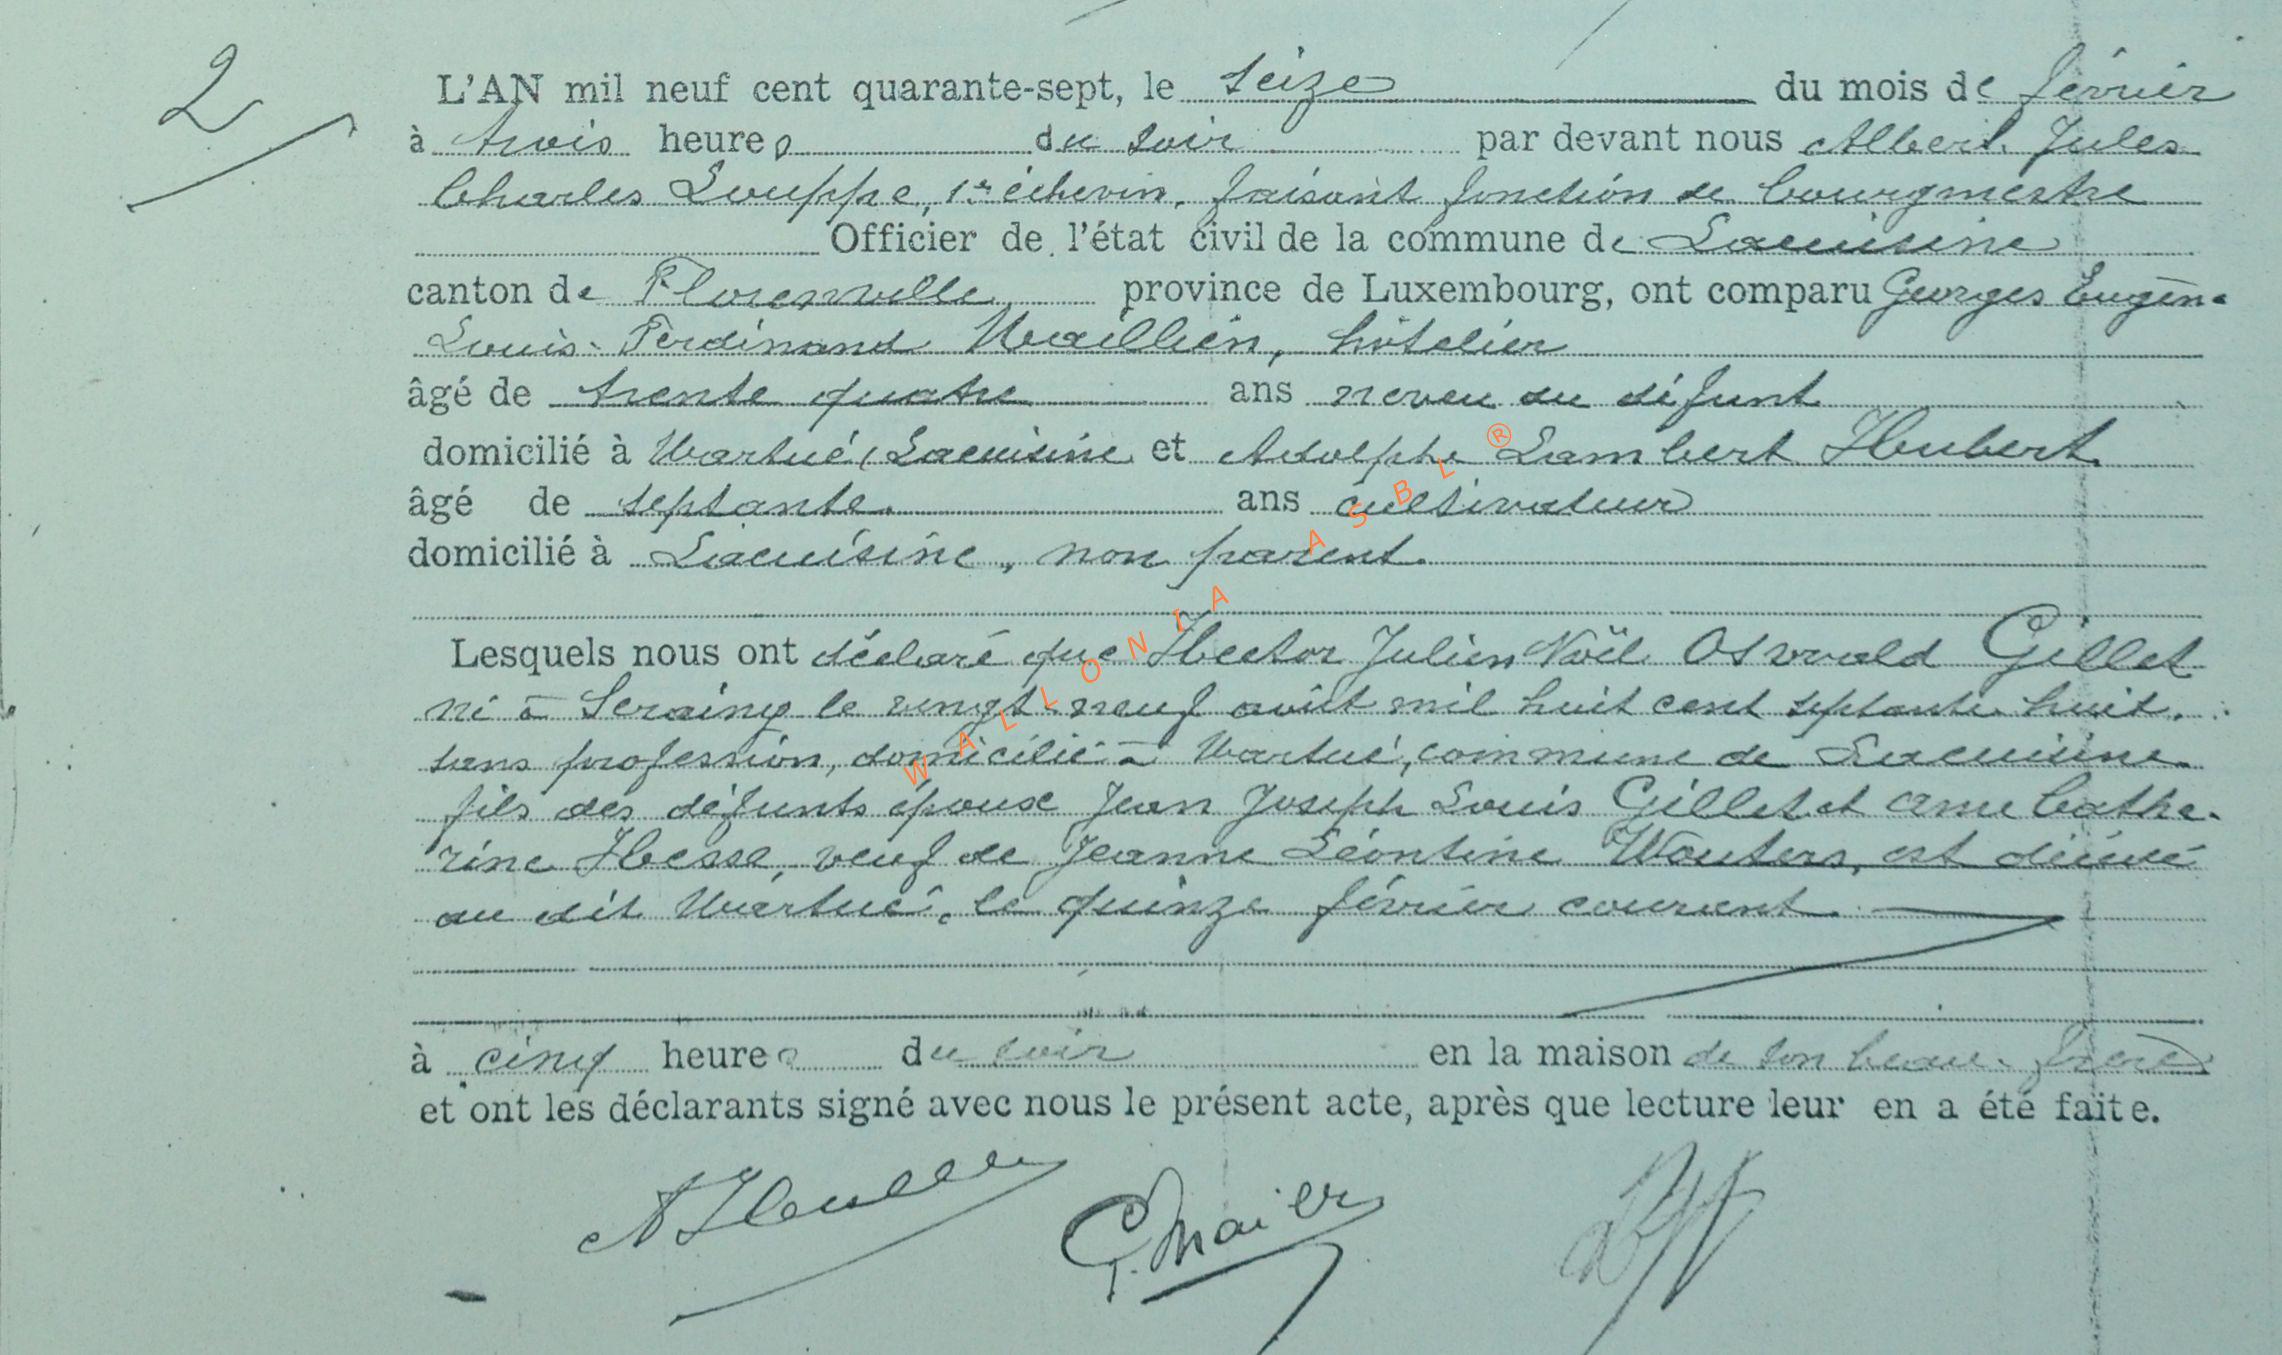 2
L'AN mil neuf cent quarante-sept, le seize du mois de février
à trois heures du soir par devant nous Albert Jules
Charles Louppe, 1er échevin, faisant fonction de bourgmestre
Officier de l'état civil de la commune de Lacuisine
canton de Florenville province de Luxembourg, ont comparu Georges Eugène
Louis Ferdinand hôtelier
âgé de trente quatre ans neveu du défunt
domicilié à Martué, Lacuisine et Adolphe Lambert Hubert
âgé de septante ans cultivateur
domicilié à Lacuisine, non parent.
Lesquels nous ont déclaré que Hector Julien Noël Oswald Gillet
né à Seraing le vingt-neuf août mil huit cent septante huit.
sans profession, domicilié à Martué, commune de Lacuisine
fils des défunts époux Jean Joseph Louis Gillet et Anne Cathe-
rine Hesse, veuf de Jeanne Léontine Wouters, est décédé
au dit Martué, le quinze février courant.
à cinq heures du soir en la maison de son beau-frère
et ont les déclarants signé avec nous le présent acte, après que lecture leur en a été faite.
G. Maier
WALLONIA ASBL ®